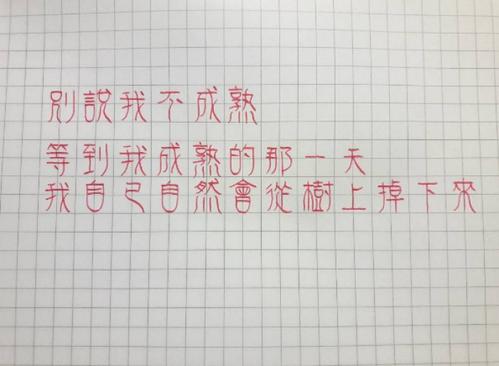 別說我不成熟
等到我成熟的那一天
我自己自然會從樹上掉下來